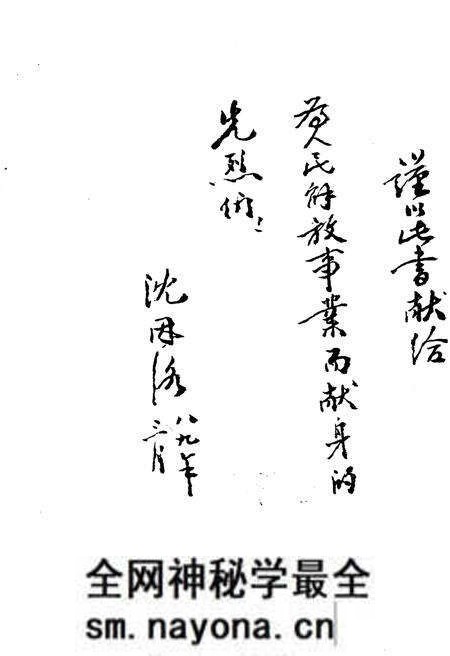 謹以此書献给
为人民解放事業而献身的
先烈们！
沈
八九年
三月
全网神秘学最全
sm.nayona.cn